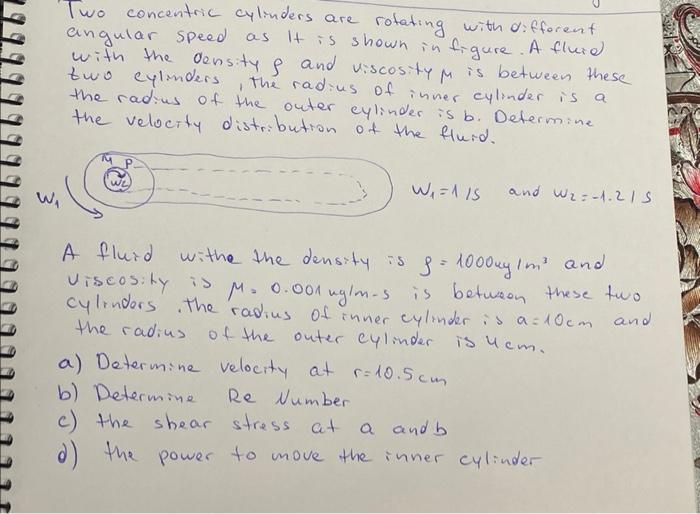 Two concentric cylinders are rotating with different
angular speed as It is shown in figure. A fluid
with the density ρ and viscosity μ is between these
two cylinders, the radius of inner cylinder is a
the radius of the outer cylinder is b. Determine
the velocity distribution of the fluid.
M P
W₂
W₁
W₁=1/s and W₂=-1.2/s
A fluid withe the density is ρ=1000kg/m³ and
viscosity is μ=0.001 kg/m-s is between these two
cylinders. The radius of inner cylinder is a=10cm and
the radius of the outer cylinder is 4cm.
a) Determine velocity at r=10.5cm
b) Determine Re Number
c) the shear stress at a and b
d) the power to move the inner cylinder